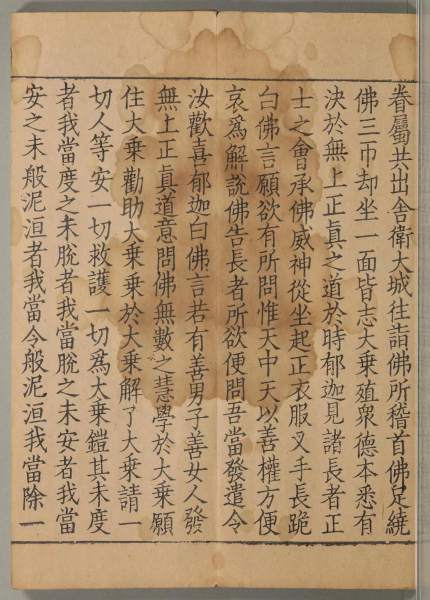 眷屬共出舍衛大城往詣佛所稽首佛足繞
佛三帀却坐一面皆志大乘殖衆德本悉有
決於無上正真之道於時郁迦見諸長者正
士之會承佛威神從坐起正衣服叉手長跪
白佛言願欲有所問惟天中天以善權方便
哀爲解說佛告長者所欲便問吾當發遣令
汝歡喜郁迦白佛言若有善男子善女人發
無上正真道意問佛無數之慧學於大乘願
住大乘勸助大乘乘於大乘解了大乘請一
切人等安一切救護一切爲大乘鎧其未度
者我當度之未脫者我當脫之未安者我當
安之未般泥洹者我當令般泥洹我當除一